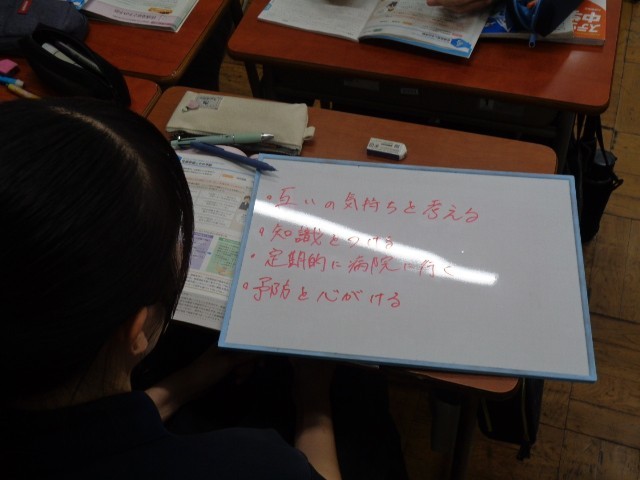 ・互いの気持ちを考える
・知識をつける
・定期的に病院に行く
・予防を心がける